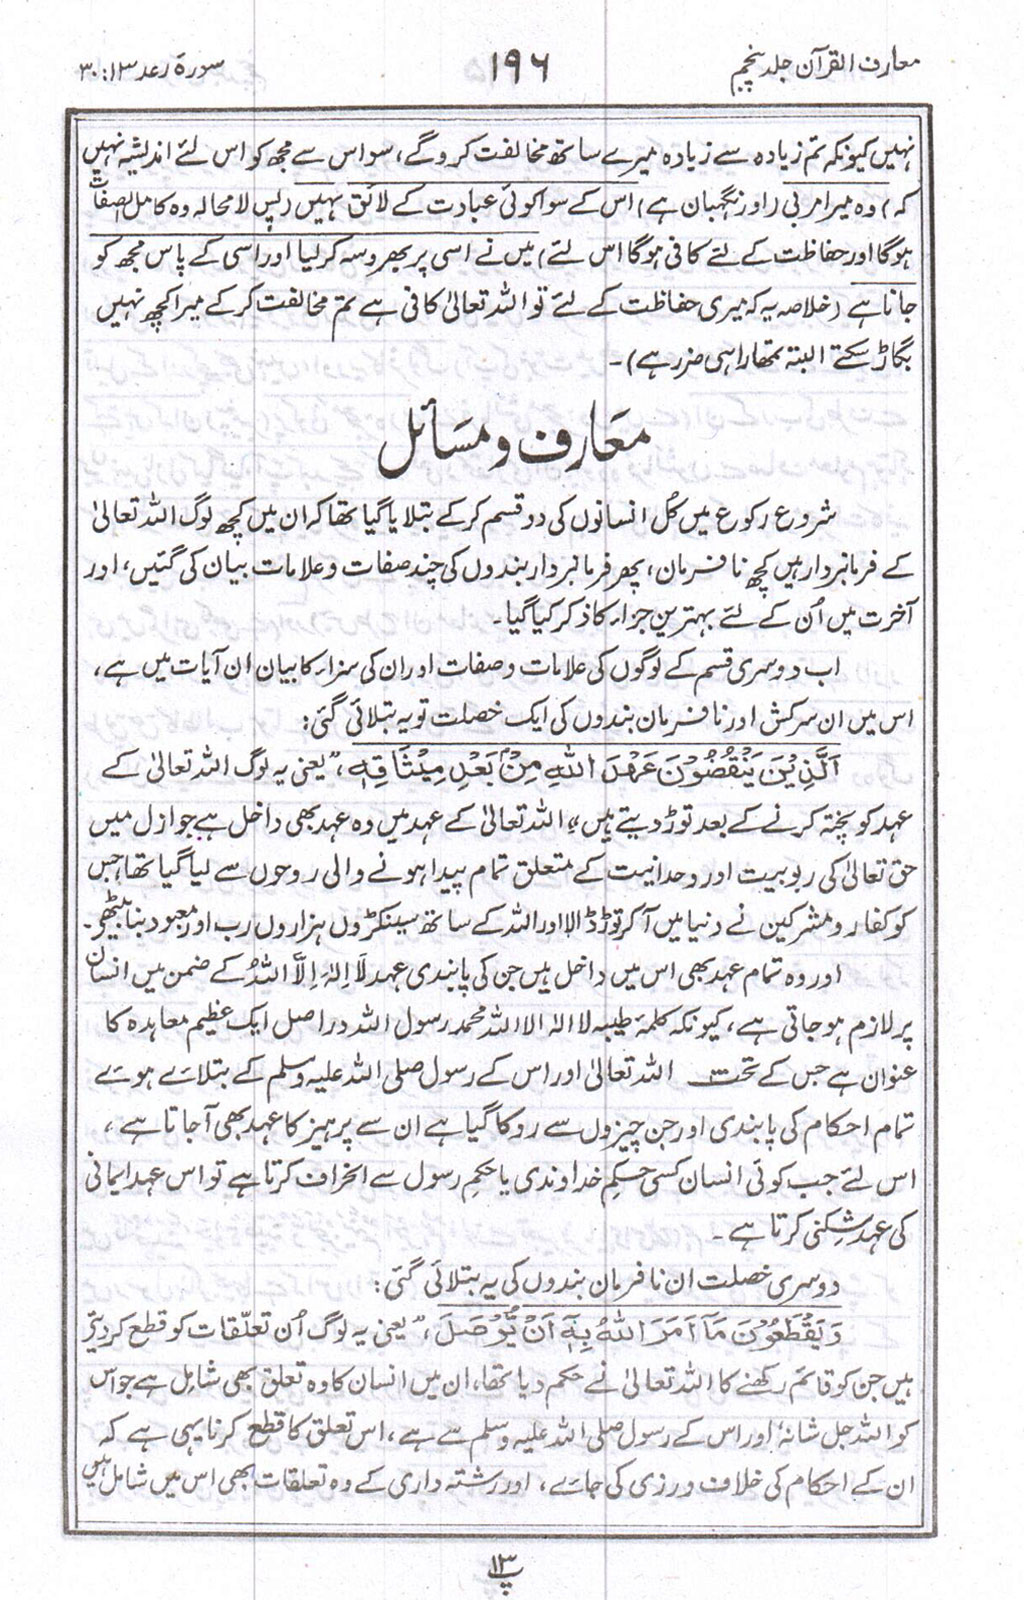 معارف القرآن جلد پنجم
۱۹۶
سورۂ رعد ۱۳ : ۳۰
نہیں کیونکہ تم زیادہ سے زیادہ میرے ساتھ مخالفت کرو گے، سو اس سے مجھ کو اس لئے اندیشہ نہیں
کہ) وہ میرا مربی (اور نگہبان ہے) اس کے سوا کوئی عبادت کے لائق نہیں (پس لا محالہ وہ کامل الصفات
ہوگا اور حفاظت کے لئے کافی ہوگا اس لئے) میں نے اسی پر بھروسہ کر لیا اور اسی کے پاس مجھ کو
جانا ہے (خلاصہ یہ کہ میری حفاظت کے لئے تو اللہ تعالیٰ کافی ہے تم مخالفت کر کے میرا کچھ نہیں
بگاڑ سکتے البتہ تمھارا ہی ضرر ہے)۔
معارف و مسائل
شروع رکوع میں کُل انسانوں کی دو قسم کر کے بتلایا گیا تھا کہ ان میں کچھ لوگ اللہ تعالیٰ
کے فرمانبردار ہیں کچھ نافرمان، پھر فرمانبردار بندوں کی چند صفات و علامات بیان کی گئیں، اور
آخرت میں اُن کے لئے بہترین جزاء کا ذکر کیا گیا۔
اب دوسری قسم کے لوگوں کی علامات و صفات اور ان کی سزاء کا بیان ان آیات میں ہے،
اس میں ان سرکش اور نافرمان بندوں کی ایک خصلت تو یہ بتلائی گئی:
اَلَّذِیْنَ یَنْقُضُوْنَ عَھْدَ اللّٰہِ مِنْۢ بَعْدِ مِیْثَاقِہٖ، ”یعنی یہ لوگ اللہ تعالیٰ کے
عہد کو پختہ کرنے کے بعد توڑ دیتے ہیں“ اللہ تعالیٰ کے عہد میں وہ عہد بھی داخل ہے جو ازل میں
حق تعالیٰ کی ربوبیت اور وحدانیت کے متعلق تمام پیدا ہونے والی روحوں سے لیا گیا تھا، جس
کو کفار و مشرکین نے دنیا میں آکر توڑ ڈالا اور اللہ کے ساتھ سینکڑوں ہزاروں رب اور معبود بنا بیٹھے۔
اور وہ تمام عہد بھی اس میں داخل ہیں جن کی پابندی عہد لَا اِلٰہَ اِلَّا اللہُ کے ضمن میں انسان
پر لازم ہو جاتی ہے، کیونکہ کلمۂ طیبہ لا الٰہ الا اللہ محمد رسول اللہ دراصل ایک عظیم معاہدہ کا
عنوان ہے جس کے تحت اللہ تعالیٰ اور اس کے رسول صلی اللہ علیہ وسلم کے بتلائے ہوئے
تمام احکام کی پابندی اور جن چیزوں سے روکا گیا ہے ان سے پرہیز کا عہد بھی آجاتا ہے،
اس لئے جب کوئی انسان کسی حکمِ خداوندی یا حکمِ رسول سے انحراف کرتا ہے تو اس عہد ایمانی
کی عہد شکنی کرتا ہے۔
دوسری خصلت ان نافرمان بندوں کی یہ بتلائی گئی:
وَ یَقْطَعُوْنَ مَآ اَمَرَ اللّٰہُ بِہٖٓ اَنْ یُّوْصَلَ، ”یعنی یہ لوگ اُن تعلّقات کو قطع کر دیتے
ہیں جن کو قائم رکھنے کا اللہ تعالیٰ نے حکم دیا تھا، ان میں انسان کا وہ تعلق بھی شامل ہے جو اس
کو اللہ جل شانہٗ اور اس کے رسول صلی اللہ علیہ وسلم سے ہے، اس تعلق کا قطع کرنا یہی ہے کہ
ان کے احکام کی خلاف ورزی کی جائے، اور رشتہ داری کے وہ تعلقات بھی اس میں شامل ہیں
پ ۱۳